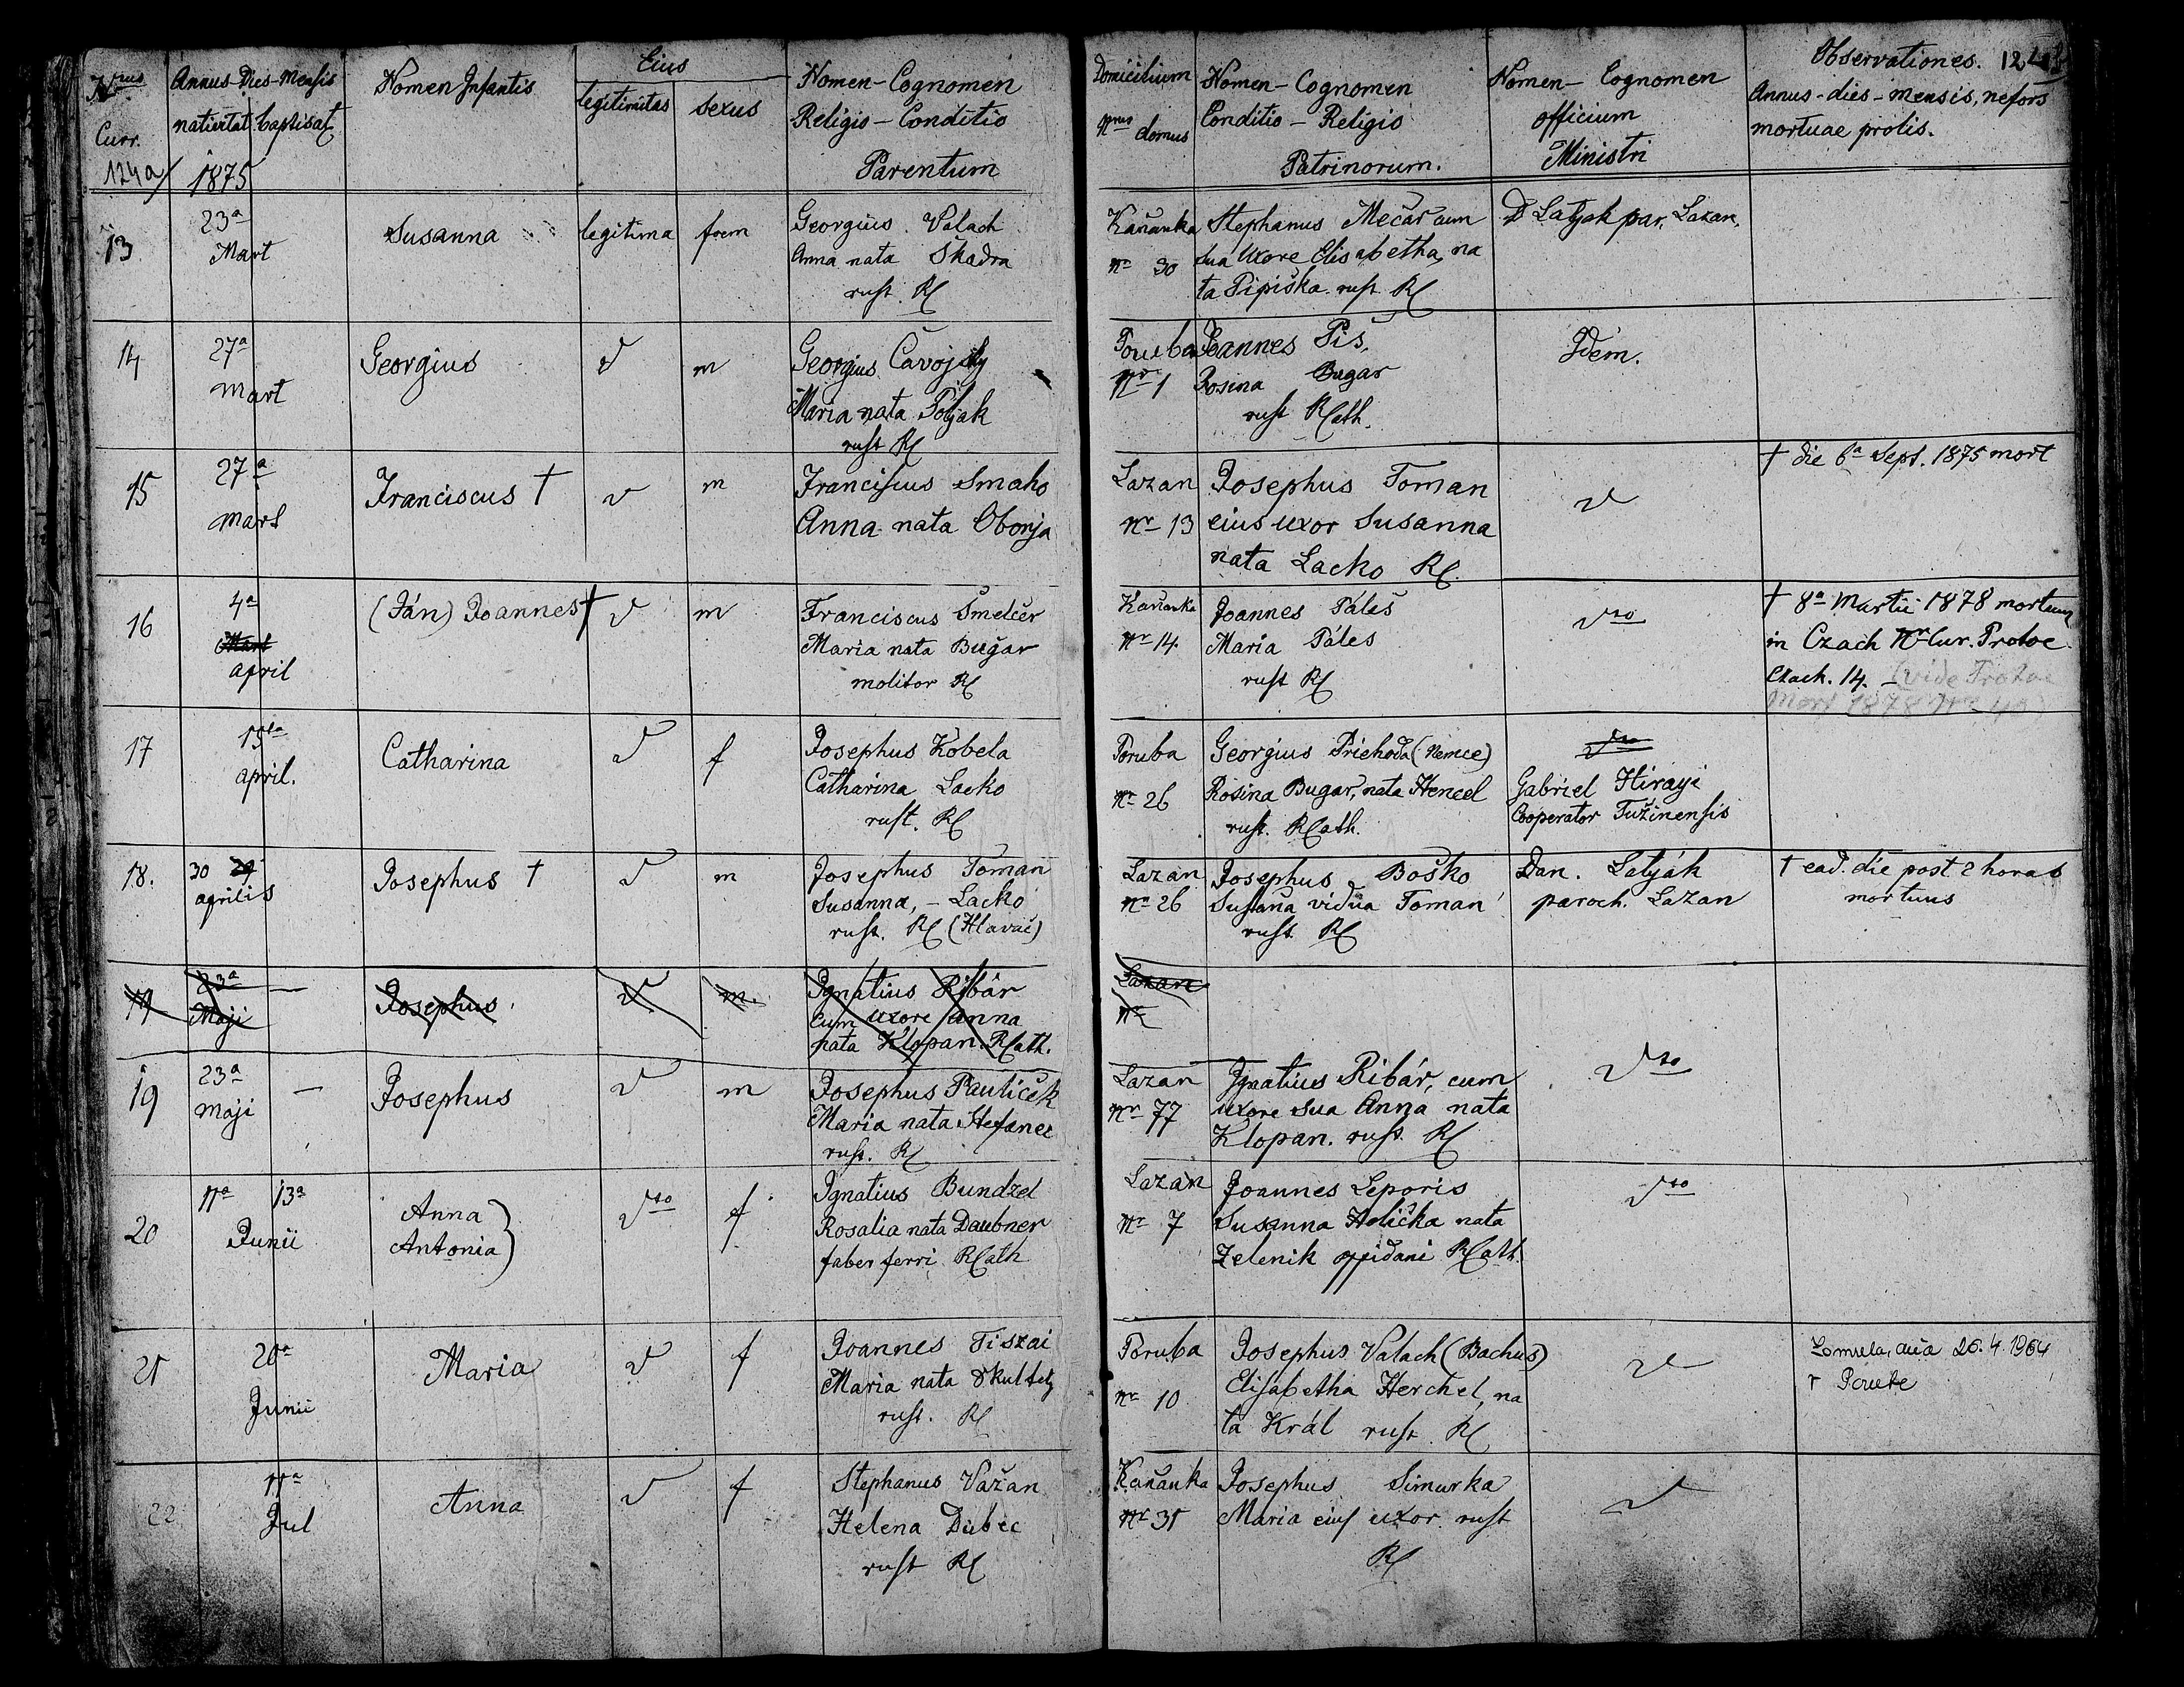 Nrus Curr.
Annus-Dies-Mensis
nativitat. baptisat.
Nomen Infantis
Eius
legitimitas
sexus
Nomen-Cognomen
Religio-Conditio
Parentum
Domicilium
Nrus domus
Nomen-Cognomen
Conditio-Religio
Patrinorum.
Nomen-Cognomen
officium
Ministri
Observationes.
Annus-dies-mensis, nefors
mortuae prolis.
124a/
1875
13
23a
Mart
Susanna
legitima
foem
Georgius Valach
Anna nata Škadra
rust. RC
Kačanka
Nr 30
Stephanus Mečár cum
sua Uxore Elisabetha, na
ta Pipiška. rust. RC
D Latyak par. Lazan.
14
27a
Mart
Georgius
d
m
Georgius Čavojský
Maria nata Poljak
rust RC
Poruba
Nr 1
Joannes Piš,
Rosina Bugar
rust RCath.
Idem.
15
27a
Mart
Franciscus †
d
m
Franciscus Smaho
Anna nata Obonja
Lazan
Nr 13
Josephus Toman
eius uxor Susanna
nata Lacko RC.
d
† die 6a Sept. 1875 mort
16
4a
Mart
april
(Ján) Joannes †
d
m
Franciscus Šmelcer
Maria nata Bugar
molitor RC
Kačanka
Nr 14.
Joannes Páleš
Maria Páles
rust RC
dto
† 8a Martii 1878 mortuus
in Czach Nr Cur. Protoc.
Czach. 14. - (vide Protoc
Mort 1878 Nr 40)
17
15ta
april.
Catharina
d
f
Josephus Kobela
Catharina Lacko
rust. RC
Poruba
Nr 26
Georgius Priehoda (Nemce)
Rosina Bugar, nata Hencel
rust. RCath.
dto
Gabriel Hirayi
Cooperator Tužinensis
18.
30 29
aprilis
Josephus †
d
m
Josephus Toman
Susanna, - Lacko
rust. RC (Hlavač)
Lazan
Nr 26
Josephus Boško
Susana vidua Toman
rust RC
Dan. Latyák
paroch. Lazan
† ead. die post 2 horas
mortuus
19
23a
Maji
Josephus
d
m.
Ignatius Ribár
cum uxore Anna
nata Klopan. RCath.
Lazan
Nr
19
23a
Maji
Josephus
d
m
Josephus Pauliček
Maria nata Stefanec
rust. RC
Lazan
Nr 77
Ignatius Ribár, cum
uxore sua Anna nata
Klopan. rust. RC
dto
20
11a 13a
Junii
Anna
Antonia
dto
f
Ignatius Bundzel
Rosalia nata Daubner
faber ferri RCath
Lazan
Nr 7
Joannes Leporis
Susanna Holička nata
Zelenik oppidani RCath.
dto
21
20a
Junii
Maria
d
f
Joannes Tiszai
Maria nata Skultety
rust. RC
Poruba
Nr 10
Josephus Valach (Bachus)
Elisabetha Herchel, na
ta Král rust RC
d
Zomrela, dňa 26.4.1964
v Porube
22
11a
Jul
Anna
d
f
Stephanus Važan
Helena Dubec
rust RC
Kačanka
Nr 31
Josephus Simurka
Maria eius uxor rust
RC
d